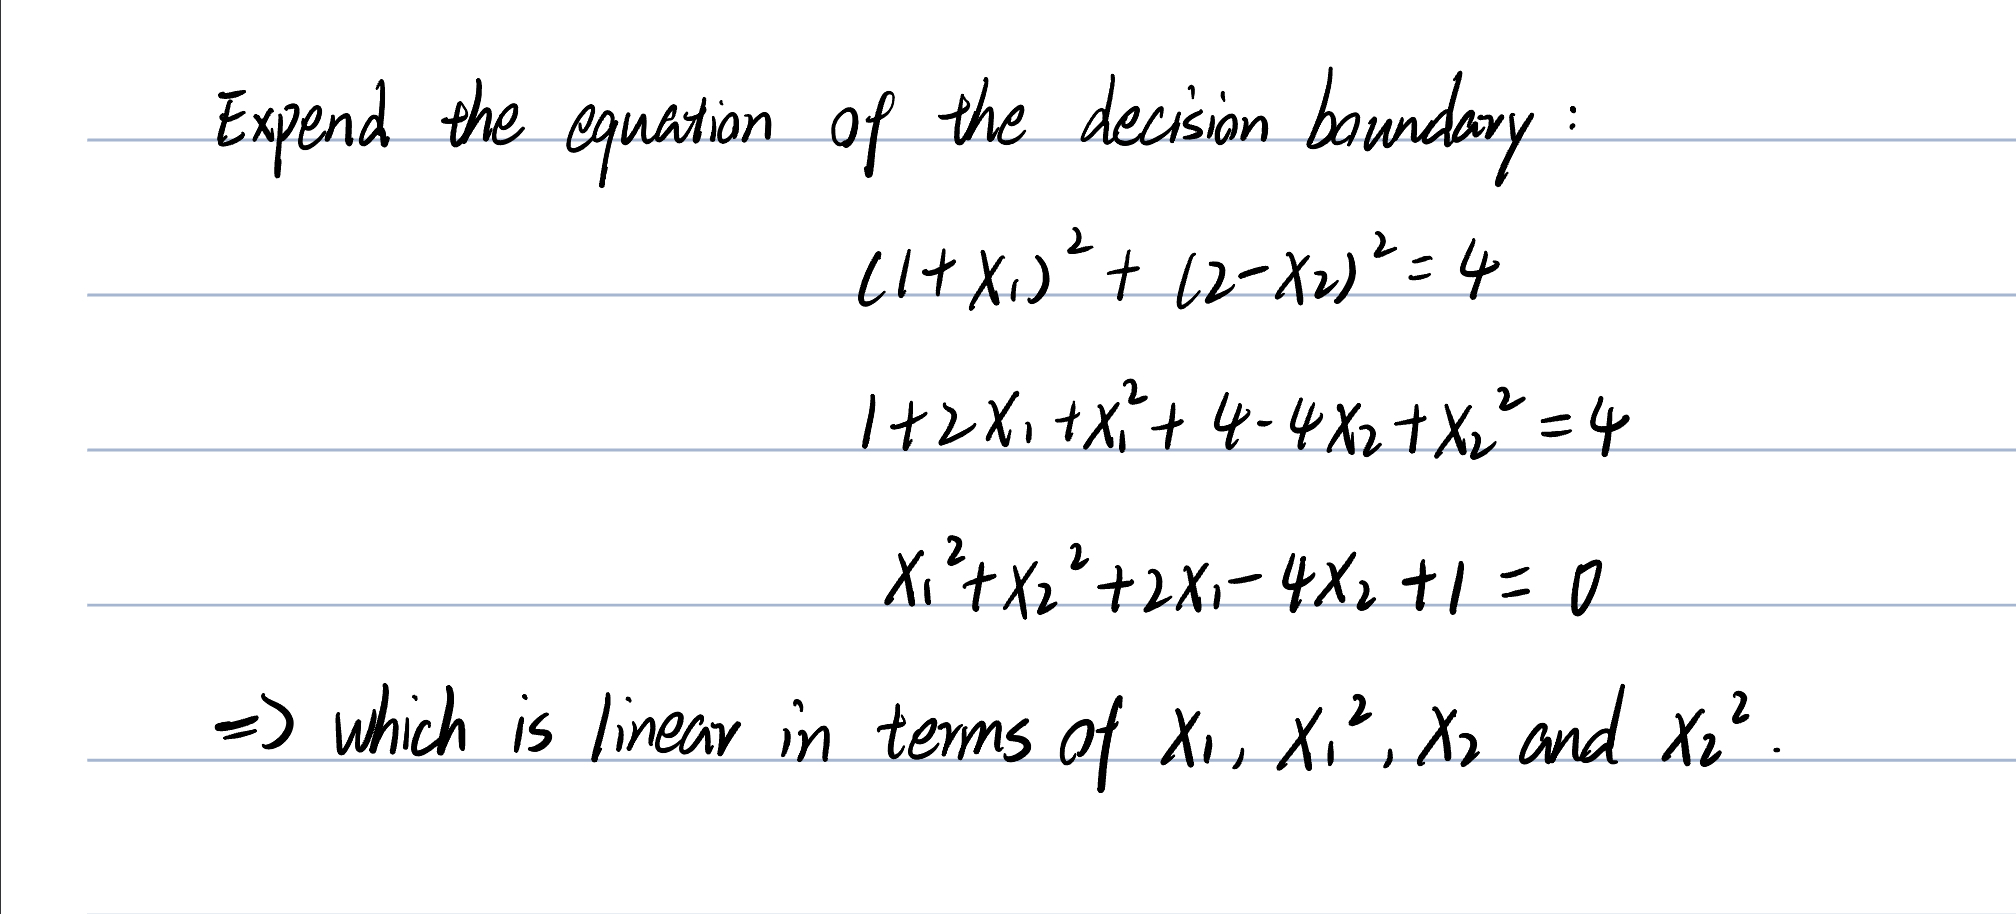 Expend the equation of the decision boundary :
(1+X₁)² + (2-X₂)² = 4
1+2X₁+X₁²+4-4X₂+X₂² = 4
X₁²+X₂²+2X₁-4X₂+1 = 0
=> which is linear in terms of X₁, X₁², X₂ and X₂².